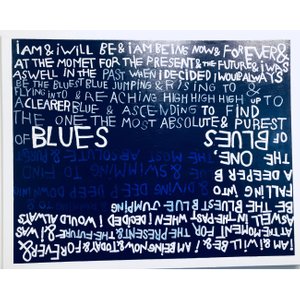 I AM & I WILL BE & I AM BEING NOW & FOREVER &
AT THE MOMET FOR THE PRESENT & THE FUTURE & I WAS
ASWELL IN THE PAST WHEN I DECIDED I WOULD ALWAYS
BE THE BLUEST BLUE JUMPING & RISING TO &
FLYING INTO & REACHING HIGH HIGH HIGH & UP TO
A CLEARER BLUE & ASCENDING TO FIND
THE ONE THE MOST ABSOLUTE & PUREST
OF BLUES
BLUES OF
THE ONE,
& RIGHT
THE MOST ABSOLUTE
A DEEPER B
& SWIMMING TO FIND
FALLING INTO
& DIVING DEEP DEEP DOWN INTO
BE THE BLUEST BLUE JUMPING
ASWELL IN THE PAST WHEN I DECIDED I WOULD ALWAYS
AT THE MOMENT FOR THE PRESENT & THE FUTURE & I WAS
I AM & I WILL BE & I AM BEING NOW & TODAY & FOREVER &